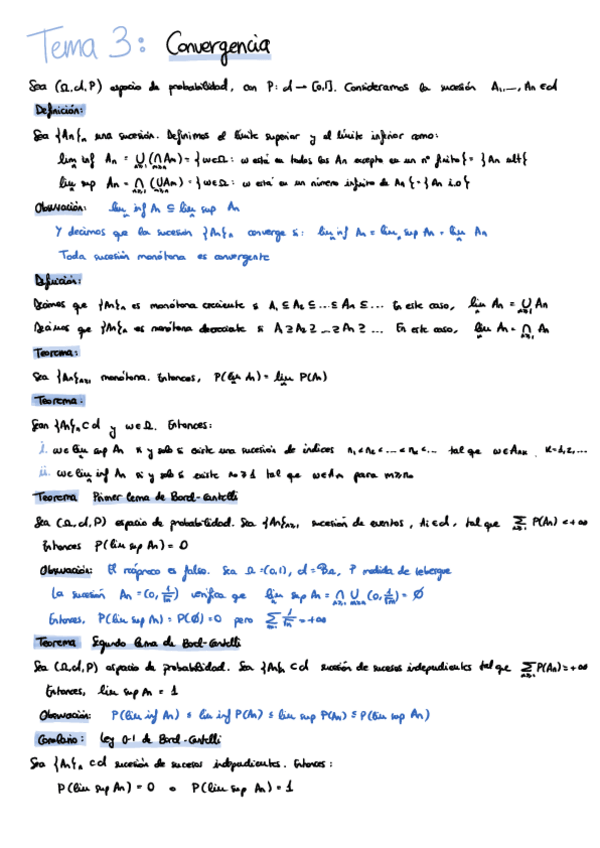 Tema 3: Convergencia
Sea (Ω, 𝒜, P) espacio de probabilidad, con P: 𝒜 → [0,1]. Consideramos la sucesión A₁,..., Aₙ ∈ 𝒜
Definición:
Sea {Aₙ}ₙ una sucesión. Definimos el límite superior y el límite inferior como:
lim inf Aₙ = ⋃ (⋂ Aₘ) = {w∈Ω: w está en todos los Aₙ excepto en un nº finito} = {Aₙ alt}
lim sup Aₙ = ⋂ (⋃ Aₘ) = {w∈Ω: w está en un número infinito de Aₙ} = {Aₙ i.o}
Observación: lim inf Aₙ ⊆ lim sup Aₙ
Y decimos que la sucesión {Aₙ}ₙ converge si: lim inf Aₙ = lim sup Aₙ = lim Aₙ
Toda sucesión monótona es convergente
Definición:
Decimos que {Aₙ}ₙ es monótona creciente si A₁ ⊆ A₂ ⊆ ... ⊆ Aₙ ⊆ ... En este caso, lim Aₙ = ⋃ Aₙ
Decimos que {Aₙ}ₙ es monótona decreciente si A ⊇ A₂ ⊇ ... ⊇ Aₙ ⊇ ... En este caso, lim Aₙ = ⋂ Aₙ
Teorema:
Sea {Aₙ}ₙ≥₁ monótona. Entonces, P(lim Aₙ) = lim P(Aₙ)
Teorema:
Sean {Aₙ}ₙ ⊂ 𝒜 y w∈Ω. Entonces:
i. w∈ lim sup Aₙ si y solo si existe una sucesión de índices n₁<n₂<...<nₖ<... tal que w∈Aₙₖ, k=1,2,...
ii. w∈ lim inf Aₙ si y solo si existe n₀≥1 tal que w∈Aₘ para m≥n₀
Teorema Primer lema de Borel-Cantelli
Sea (Ω, 𝒜, P) espacio de probabilidad. Sea {Aₙ}ₙ≥₁, sucesión de eventos, Aᵢ∈𝒜, tal que ∑ P(Aₙ) < +∞
Entonces P(lim sup Aₙ) = 0
Observación: El recíproco es falso. Sea Ω = (0,1), 𝒜 = ℬ, P medida de lebesgue
La sucesión Aₙ = (0, 1/n) verifica que lim sup Aₙ = ⋂ ⋃ (0, 1/m) = ∅
Entonces, P(lim sup Aₙ) = P(∅) = 0 pero ∑ 1/n = +∞
Teorema Segundo lema de Borel-Cantelli
Sea (Ω, 𝒜, P) espacio de probabilidad. Sea {Aₙ}ₙ ⊂ 𝒜 sucesión de sucesos independientes tal que ∑ P(Aₙ) = +∞
Entonces, lim sup Aₙ = 1
Observación: P(lim inf Aₙ) ≤ lim inf P(Aₙ) ≤ lim sup P(Aₙ) ≤ P(lim sup Aₙ)
Corolario: Ley 0-1 de Borel-Cantelli
Sea {Aₙ}ₙ ⊂ 𝒜 sucesión de sucesos independientes. Entonces:
P(lim sup Aₙ) = 0 o P(lim sup Aₙ) = 1